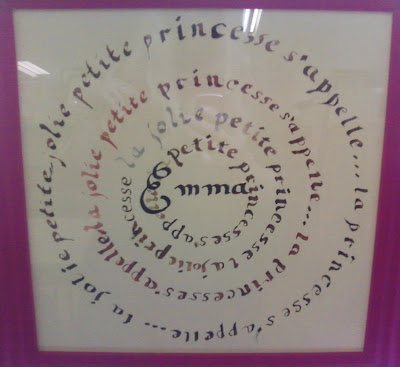 la jolie petite jolie petite princesse s'appelle... la princesse s'appelle...
la jolie petite princesse s'appelle... la princesse s'appelle
la jolie petite princesse la jolie princesse
petite princesse s'app
Emma